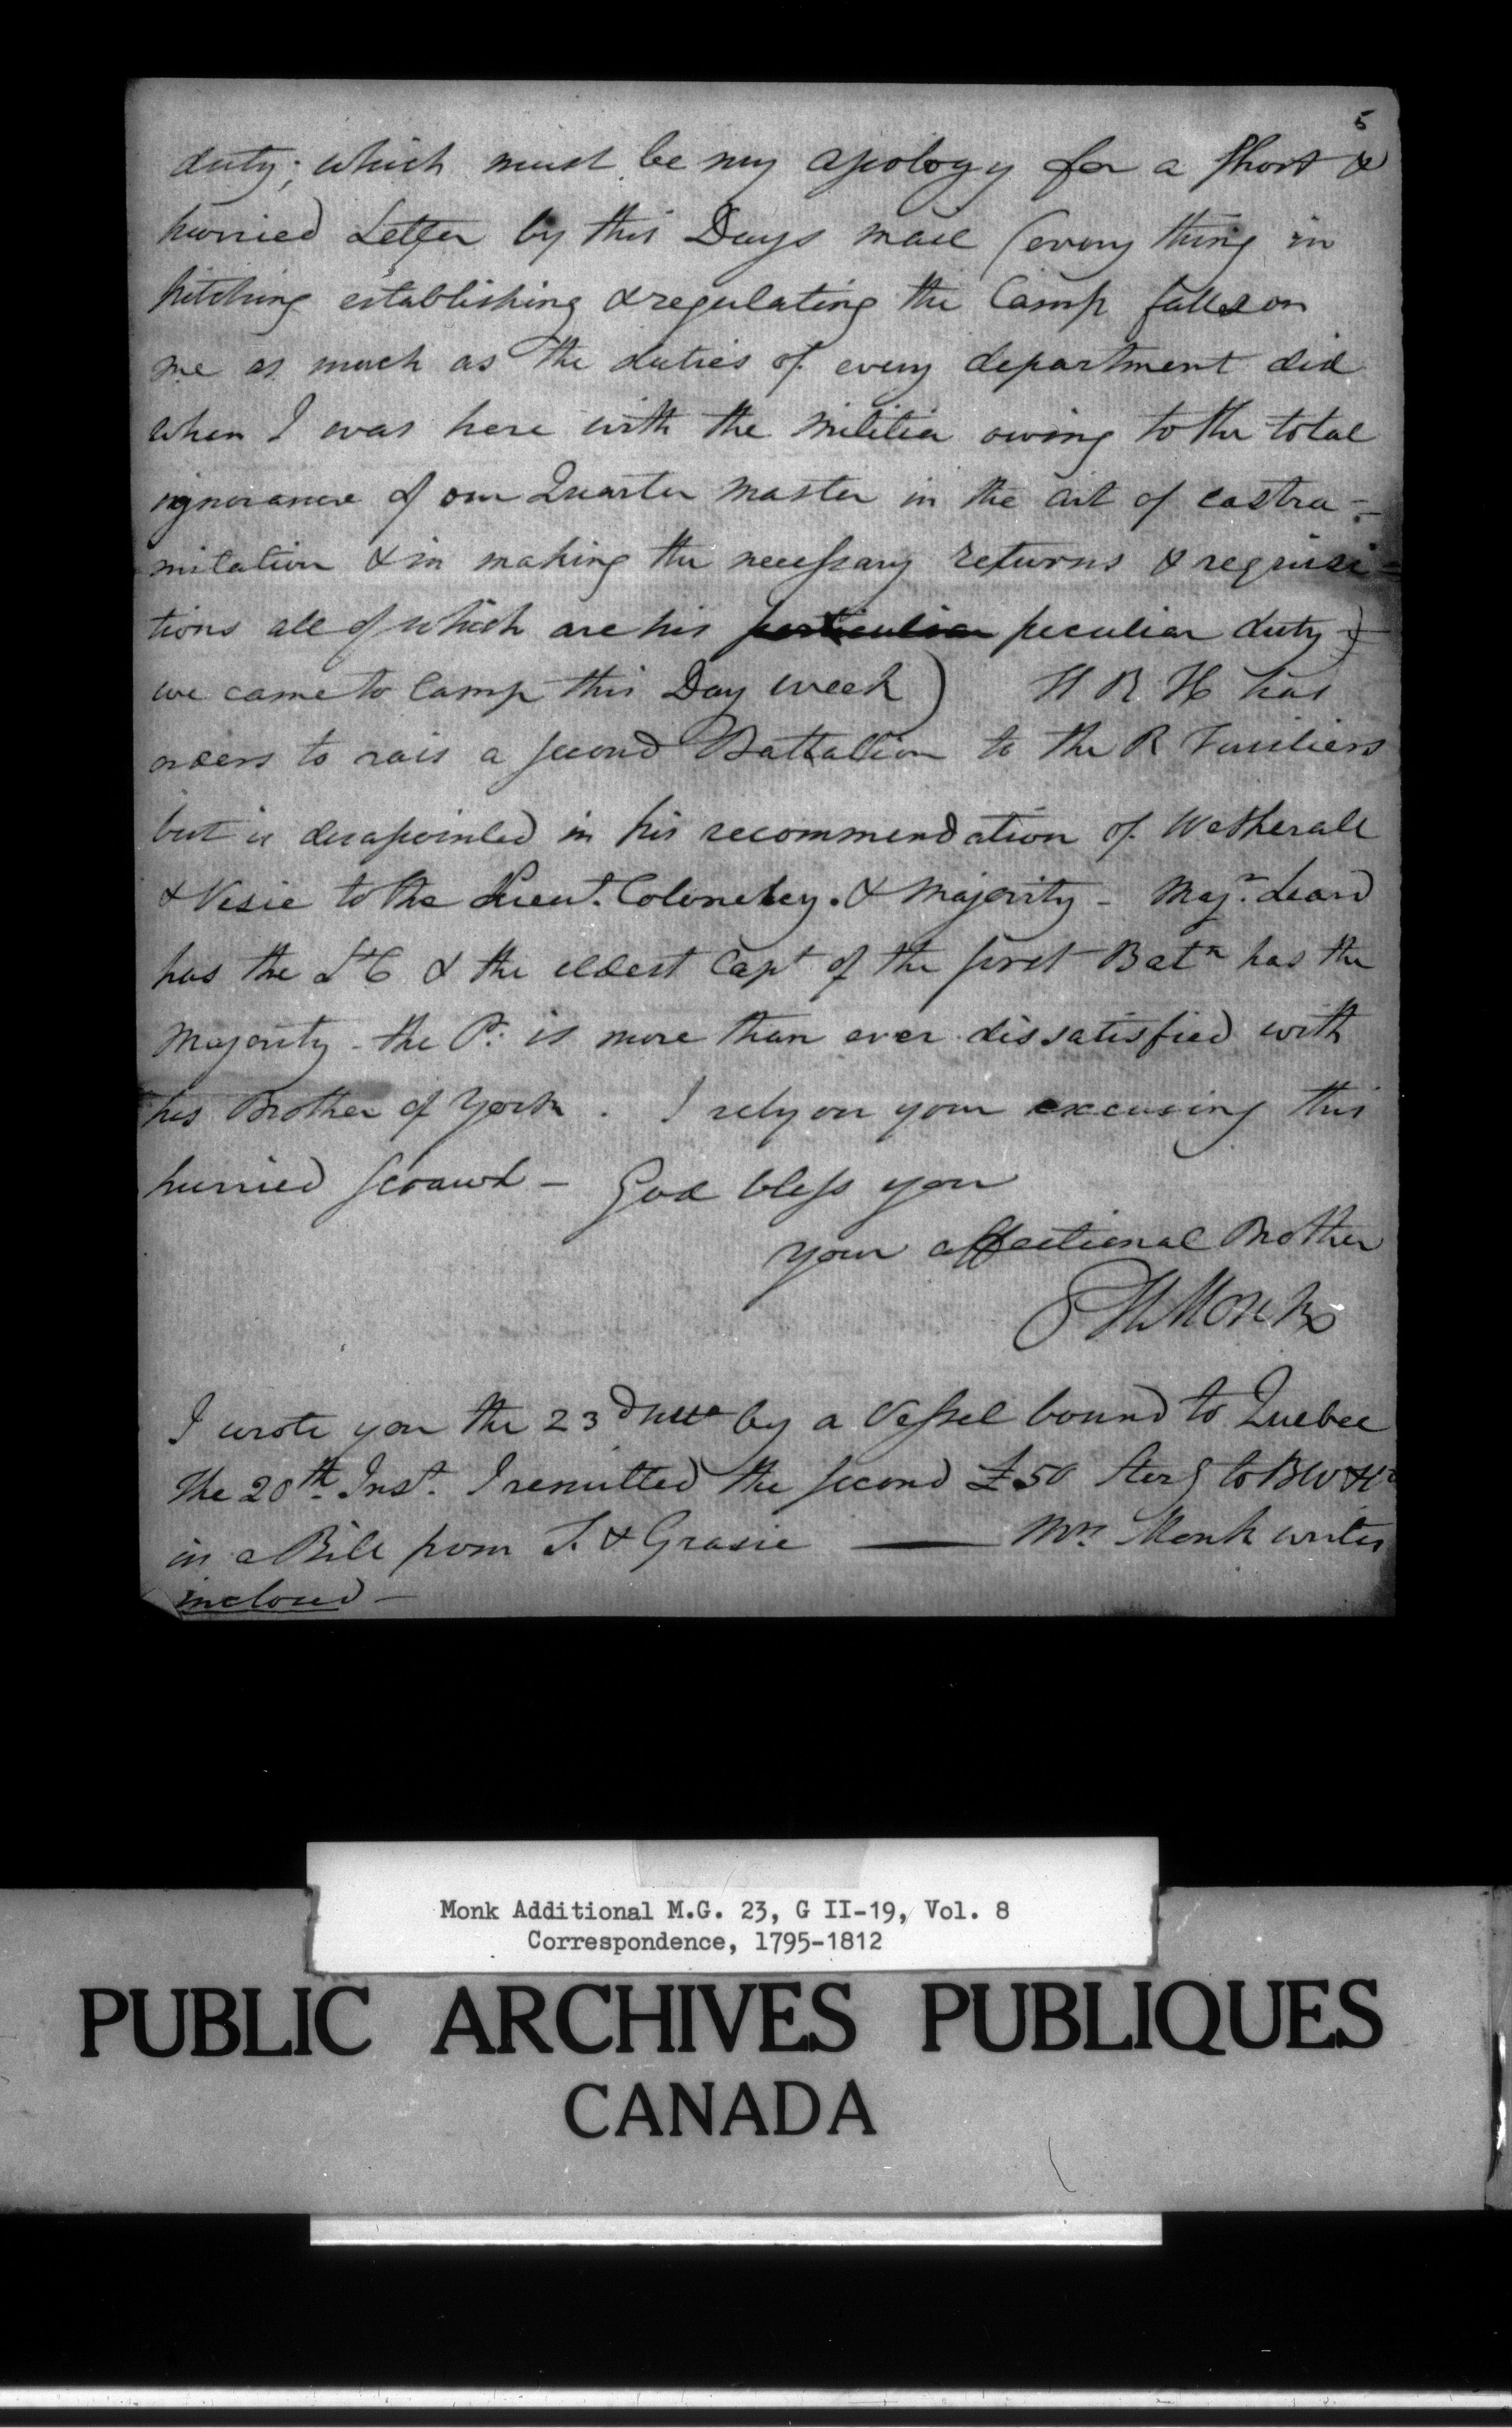 5
duty; which must be my apology for a short &
hurried Letter by this Days mail (every thing in
pitching establishing & regulating the Camp falls on
me as much as the duties of every department did
when I was here with the Militia owing to the total
ignorance of our Quarter Master in the art of castra=
mitation & in making the necessary returns & requisi=
tions all of which are his particular peculiar duty)
we came to Camp this Day week) H R H has
orders to rais a second Battalion to the R Fusiliers
but is disapointed in his recommendation of Wetherall
& Vesie to the Lieut. Colonelcy. & Majority - Majr. Leard
has the Lt C & the eldest Capt of the first Batn has the
Majority - the P: is more than ever dissatisfied with
his Brother of York. I rely on your excusing this
hurried scrawl - God bless you
your affectional Brother
GH Monk
I wrote you the 23d by a Vessel bound to Quebec
the 20th Inst. I remitted the second £50 Sterg to BW &
in a Bill from J. & Grasie — Mrs. Monk writes
inclosed -
Monk Additional M.G. 23, G II-19, Vol. 8
Correspondence, 1795-1812
PUBLIC ARCHIVES PUBLIQUES
CANADA